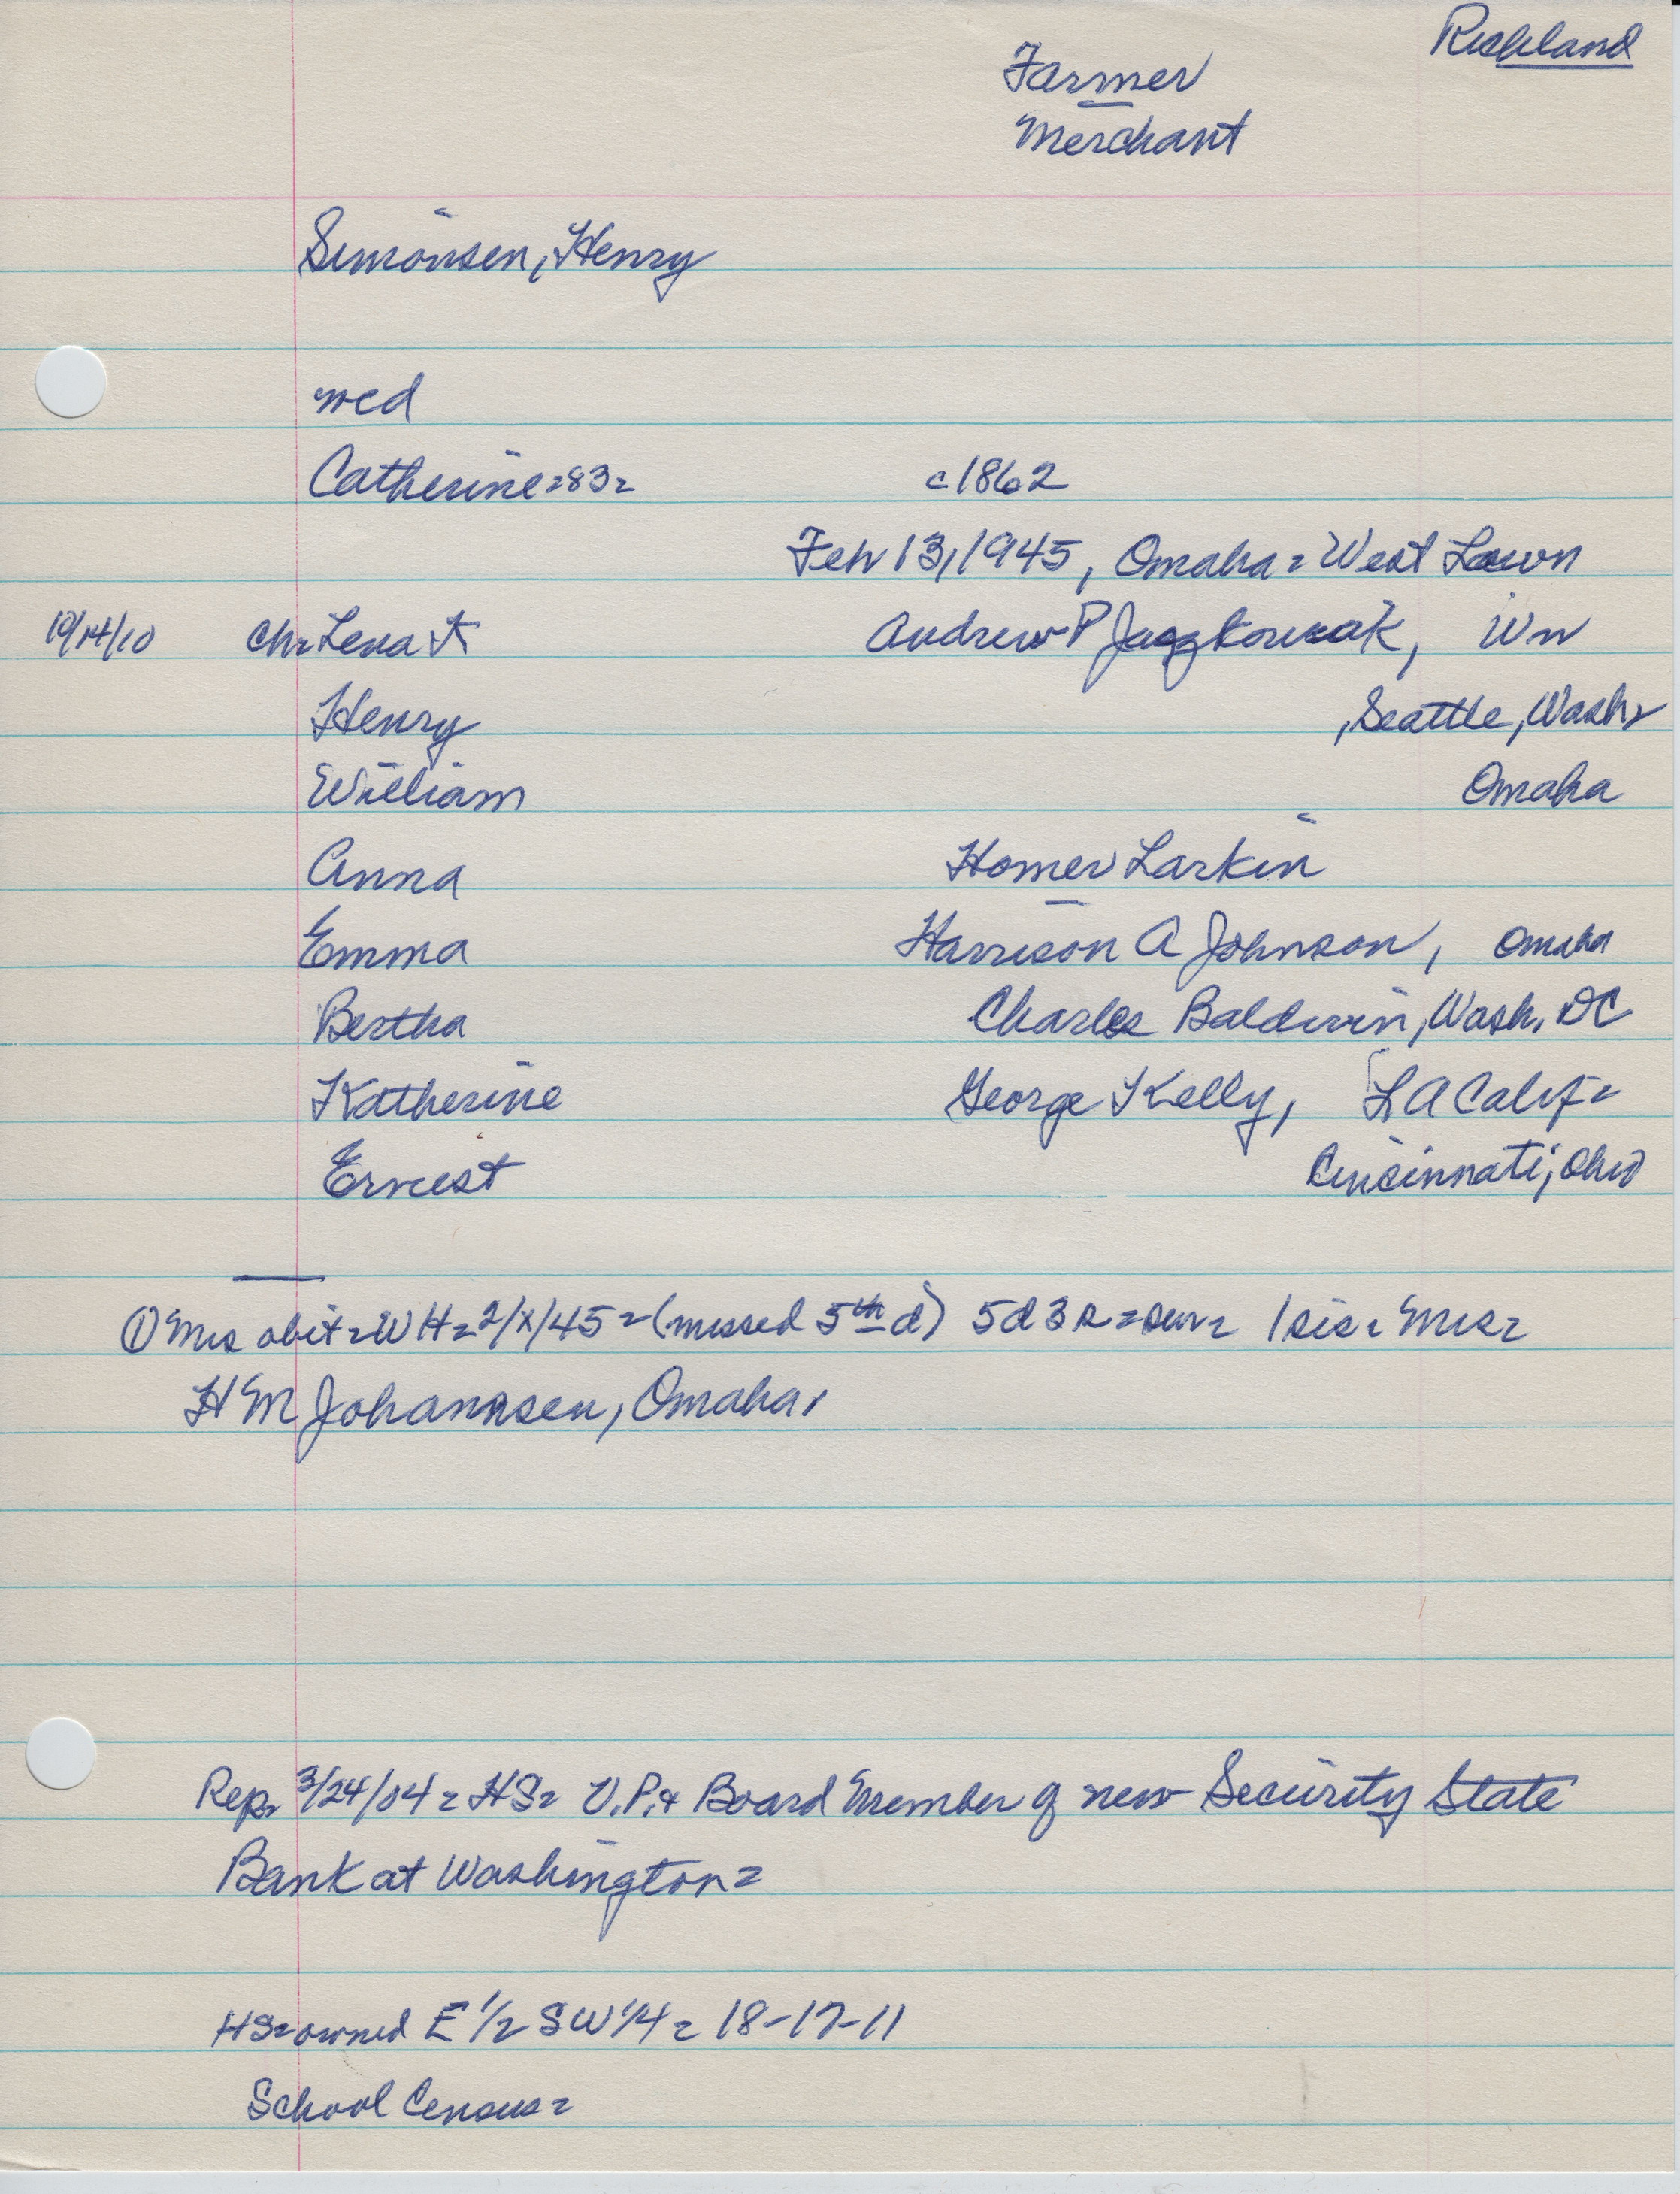 Richland
Farmer
Merchant
Simonsen, Henry
med
Catherine=83= c1862
Feb 13, 1945, Omaha = West Lawn
10/14/10 ch= Lena Andrew P , Wn
Henry , Seattle, Wash=
William Omaha
Anna Homer Larkin
Emma Harrison A Johnson, Omaha
Bertha Charles Baldwin, Wash, DC
Katherine George Kelly, L A Calif=
Ernest Cincinnati, Ohio
① Mrs obit = WH = 2/x/45 = (missed 5th d) 5d 3s = surv = 1 sis = Mrs=
H M Johannsen, Omaha,
Rep= 3/24/04 = HS= V.P. & Board Member of new Security State
Bank at Washington=
HS= owned E 1/2 SW 1/4 = 18-17-11
School Census=